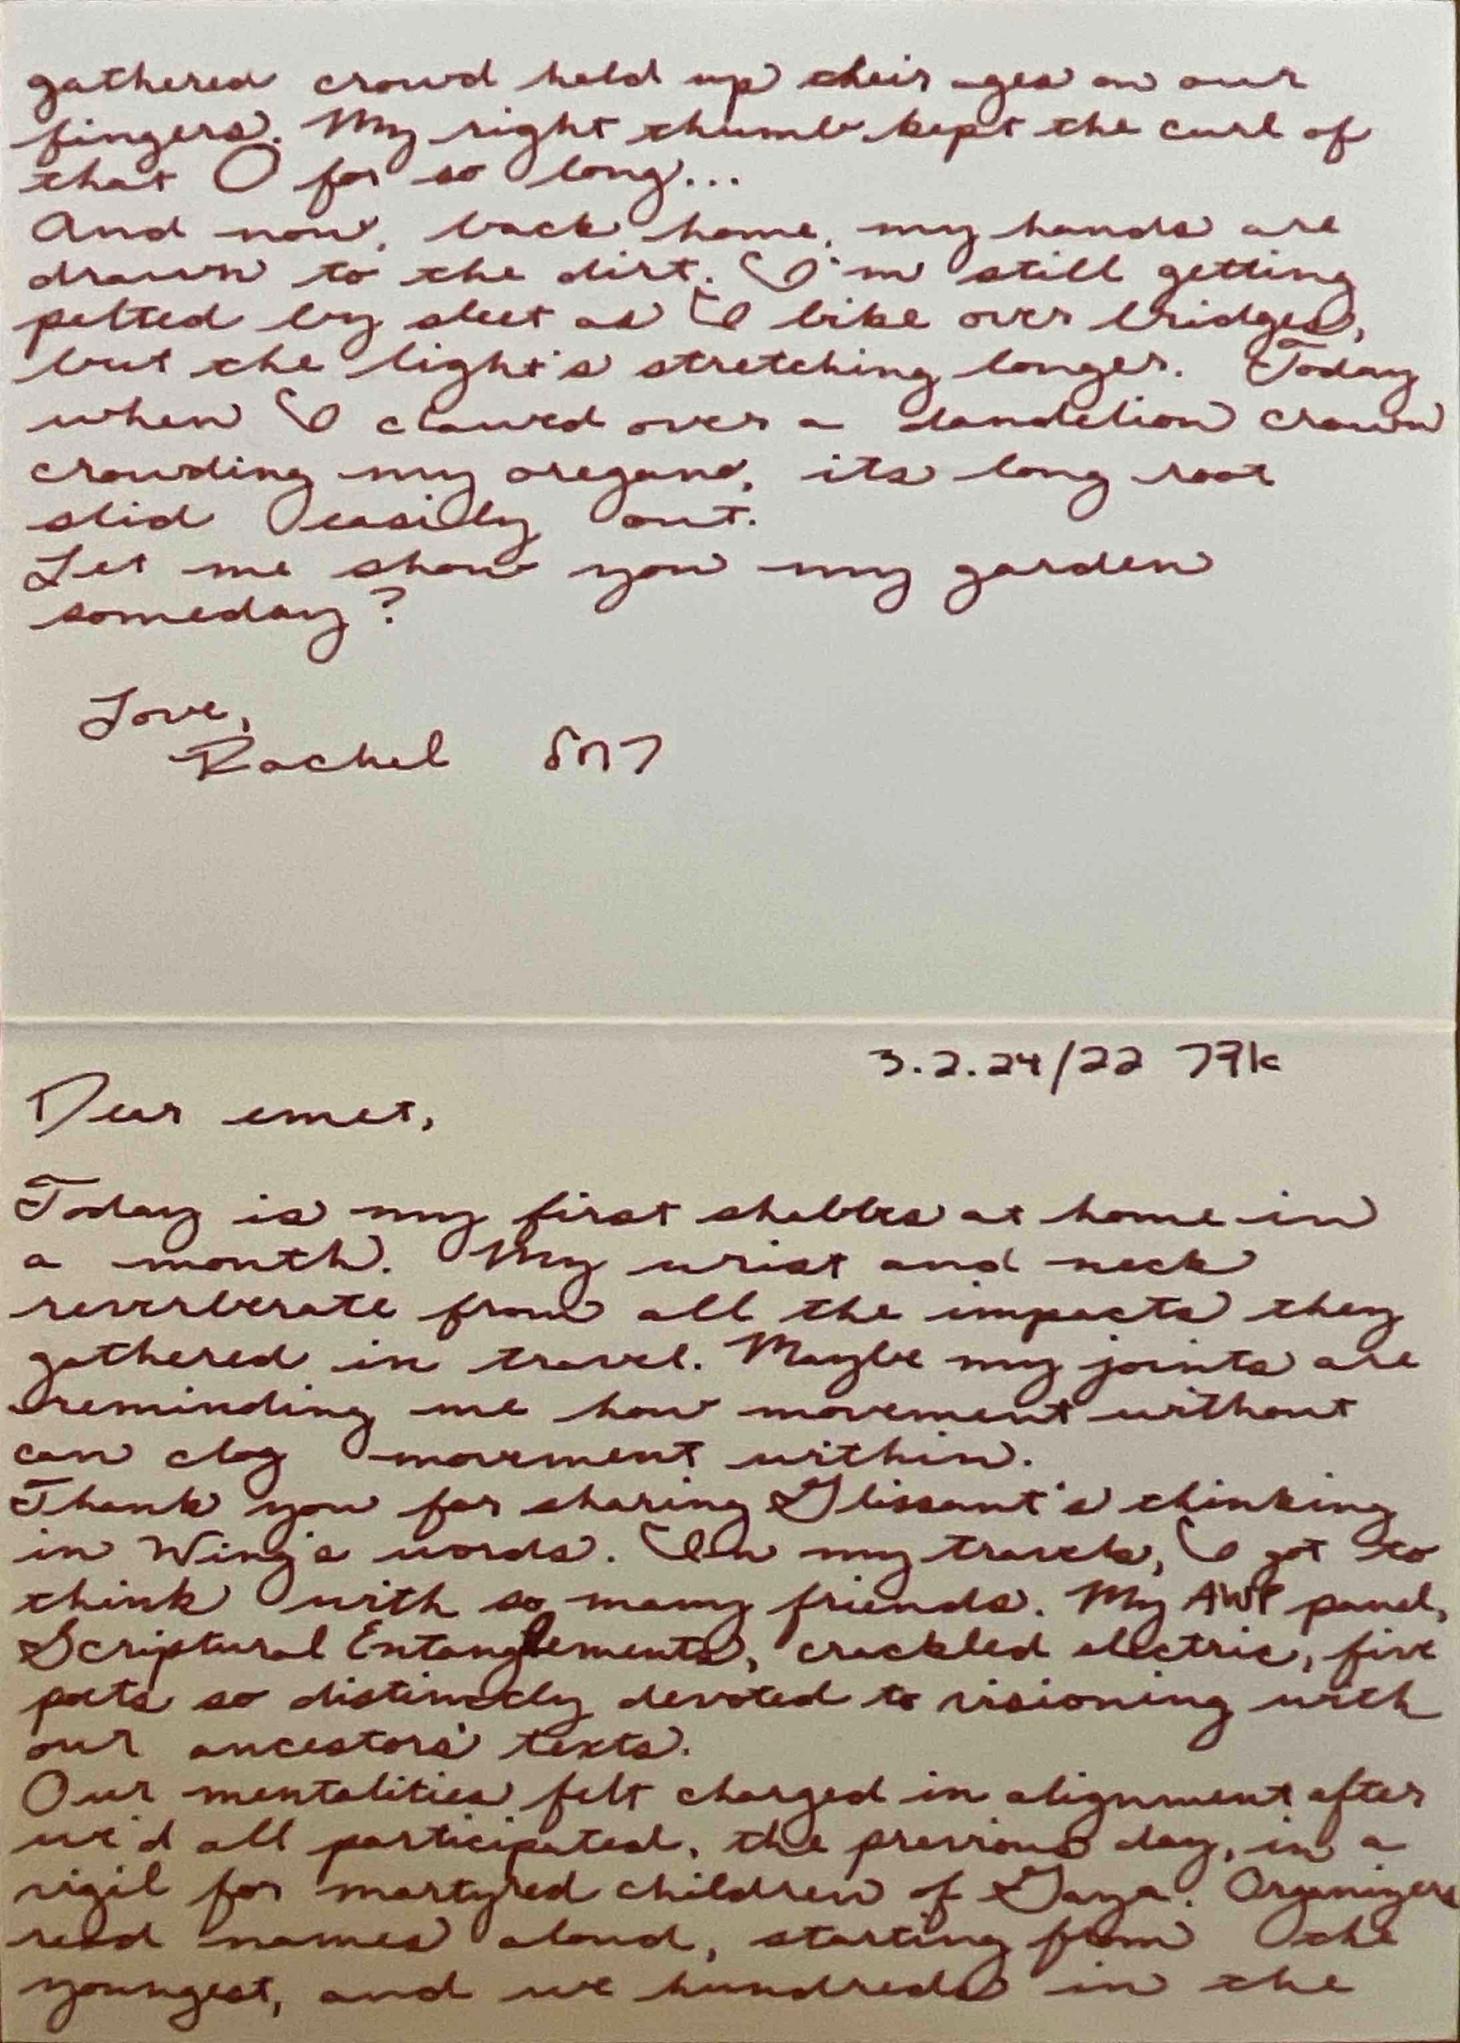 gathered crowd held up their ages on our
fingers. My right thumb kept the curl of
that O for so long...
And now, back home, my hands are
drawn to the dirt. I'm still getting
pelted by sleet as I bike over bridges,
but the light's stretching longer. Today
when I clawed over a dandelion crown
crowding my oregano, its long root
slid easily out.
Let me show you my garden
someday?
Love,
Rachel רחל
3.2.24/22 אדר
Dear emet,
Today is my first shabbes at home in
a month. My wrist and neck
reverberate from all the impacts they
gathered in travel. Maybe my joints are
reminding me how movement without
can clog movement within.
Thank you for sharing Glissant's thinking
in Wing's words. In my travels, I got to
think with so many friends. My AWP panel,
Scriptural Entanglements, crackled electric, five
poets so distinctly devoted to visioning with
our ancestors' texts.
Our mentalities felt charged in alignment after
we'd all participated, the previous day, in a
vigil for martyred children of Gaza. Organizers
read names aloud, starting from the
youngest, and we hundreds in the